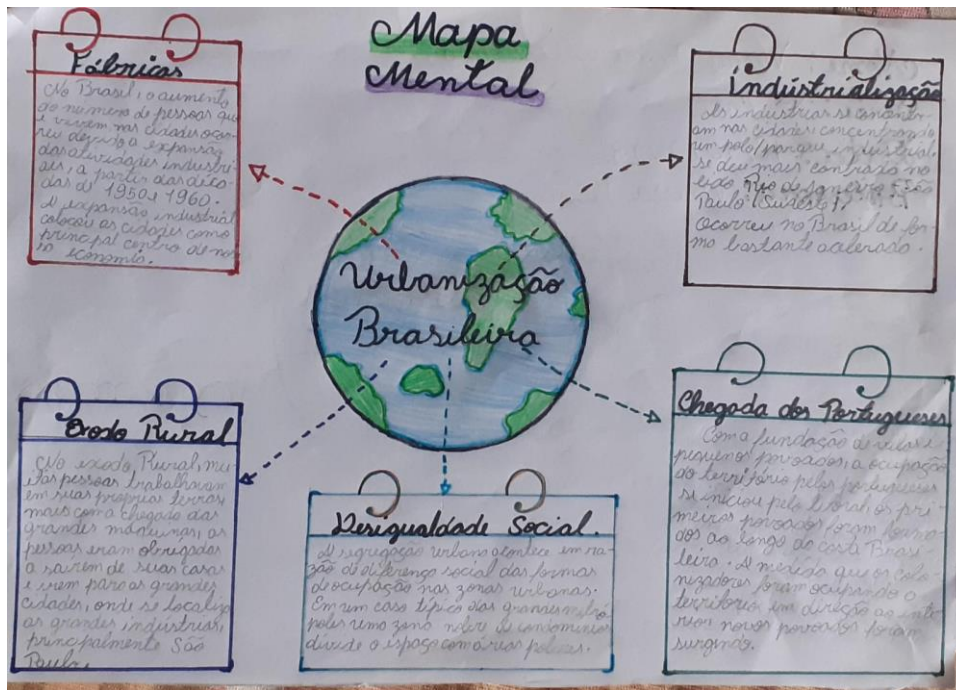 Mapa
Mental
Fábricas
No Brasil, o aumento
do número de pessoas que
vivem nas cidades ocor-
reu devido a expansão
das atividades industri-
ais, a partir das déca-
das de 1950 e 1960.
A expansão industrial
colocou as cidades como
principal centro de
economia.
indústrialização
As indústrias se concentr
am nas cidades concentrando
um polo/parque industrial.
se deu mais
Rio de Janeiro e São
Paulo (Sudeste).
Ocorreu no Brasil de for-
ma bastante acelerado.
Urbanização
Brasileira
Exodo Rural
No exodo Rural, mui
tas pessoas trabalhavam
em suas proprias terras
mais com a chegada das
grandes máquinas, as
pessoas eram obrigadas
a sairem de suas casas
e irem para as grandes
cidades, onde se localiza
as grandes indústrias,
principalmente São
Paulo.
Desigualdade Social.
A segregação urbana acontece em ra-
zão de diferença social das formas
de ocupação nas zonas urbanas.
Em um caso típico das grandes metró
poles uma zona nobre de condominios
divide o espaço com áreas pobres.
Chegada dos Portugueses
Com a fundação de vilas e
pequenos povoados, a ocupação
do território pelos portugueses
se iniciou pelo litoral, os pri-
meiros povoados foram funda-
dos ao longo da costa Brasi-
leira. A medida que os colo-
nizadores foram ocupando o
territorio em direção ao inte-
rior novos povoados foram
surgindo.